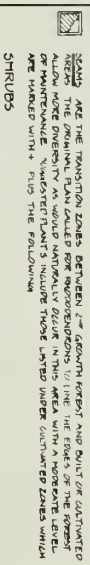 SEAMS ARE THE TRANSITION ZONES BETWEEN 2ND GROWTH FOREST AND BUILT OR CULTIVATED
AREAS THE ORIGINAL PLAN CALLED FOR RHODODENDRONS TO LINE THE EDGES OF THE FOREST
ALLOW MORE DIVERSITY AS WOULD NATURALLY OCCUR IN THIS AREA WITH A MODERATE LEVEL
OF MAINTENANCE SUGGESTED PLANTS INCLUDE THOSE LISTED UNDER CULTIVATED ZONES WHICH
ARE MARKED WITH + PLUS THE FOLLOWING
SHRUBS